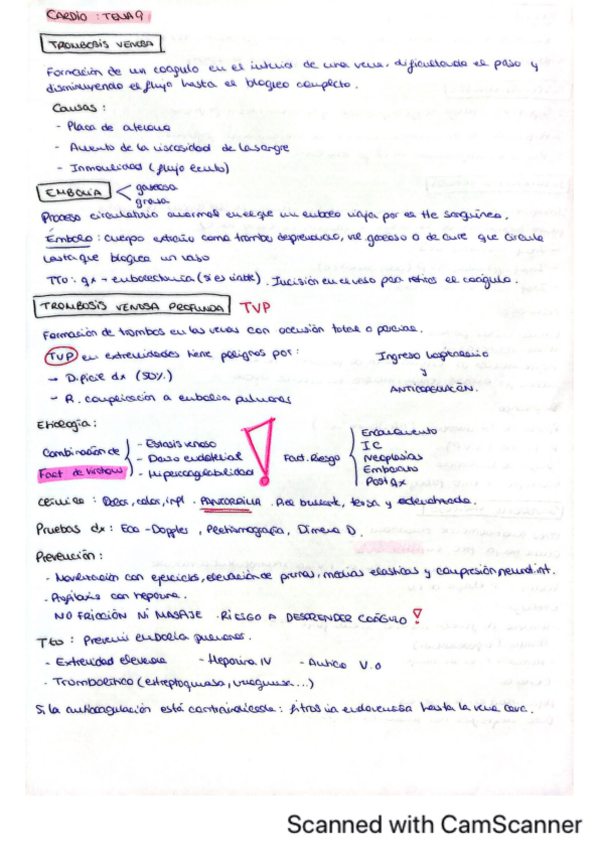 CARDIO : TEMA 9
TROMBOSIS VENOSA
Formación de un coágulo en el interior de una vena, dificultando el paso y
disminuyendo el flujo hasta el bloqueo completo.
Causas :
- Placa de ateroma
- Aumento de la viscosidad de la sangre
- Inmovilidad (flujo lento)
EMBOLIA < gaseosa
grasa
Proceso circulatorio anormal en el que un embolo viaja por el tte sanguíneo.
Émbolo : cuerpo extraño como trombo desprendido, gaseoso o de aire que circula
hasta que bloquea un vaso
TTo : qx - embolectomía (si es viable). Incisión en el vaso para retirar el coágulo.
TROMBOSIS VENOSA PROFUNDA TVP
Formación de trombos en las venas con oclusión total o parcial.
TVP en extremidades tiene peligros por :
→ Dificil dx (50%)
- R. complicación a embolia pulmonar
Ingreso hospitalario
y
ANTICOAGULACIÓN.
Etiología :
Combinación de
Fact de Virchow
- Estasis venoso
- Daño endotelial
- Hipercoagulabilidad
!
Fact. Riesgo
Encamamiento
IC
Neoplasias
Embarazo
Post qx
Clínica : Dolor, calor, infl. PANTORRILLA . Piel brillante, tersa y edematizada.
Pruebas dx : Eco - Doppler , Pletismografía, Dímero D.
Prevención :
- Movilización con ejercicios, elevación de piernas, medias elasticas y compresión neum. int.
- Profilaxis con heparina.
NO FRICCIÓN NI MASAJE - RIESGO A DESPRENDER COÁGULO !
Tto : Prevenir embolia pulmonar.
- Extremidad elevada - Heparina IV - Antico V.O
- Trombolítico (estreptoquinasa, uroquinasa...)
Si la anticoagulación está contraindicada : filtros vía endovenosa hasta la vena cava.
Scanned with CamScanner